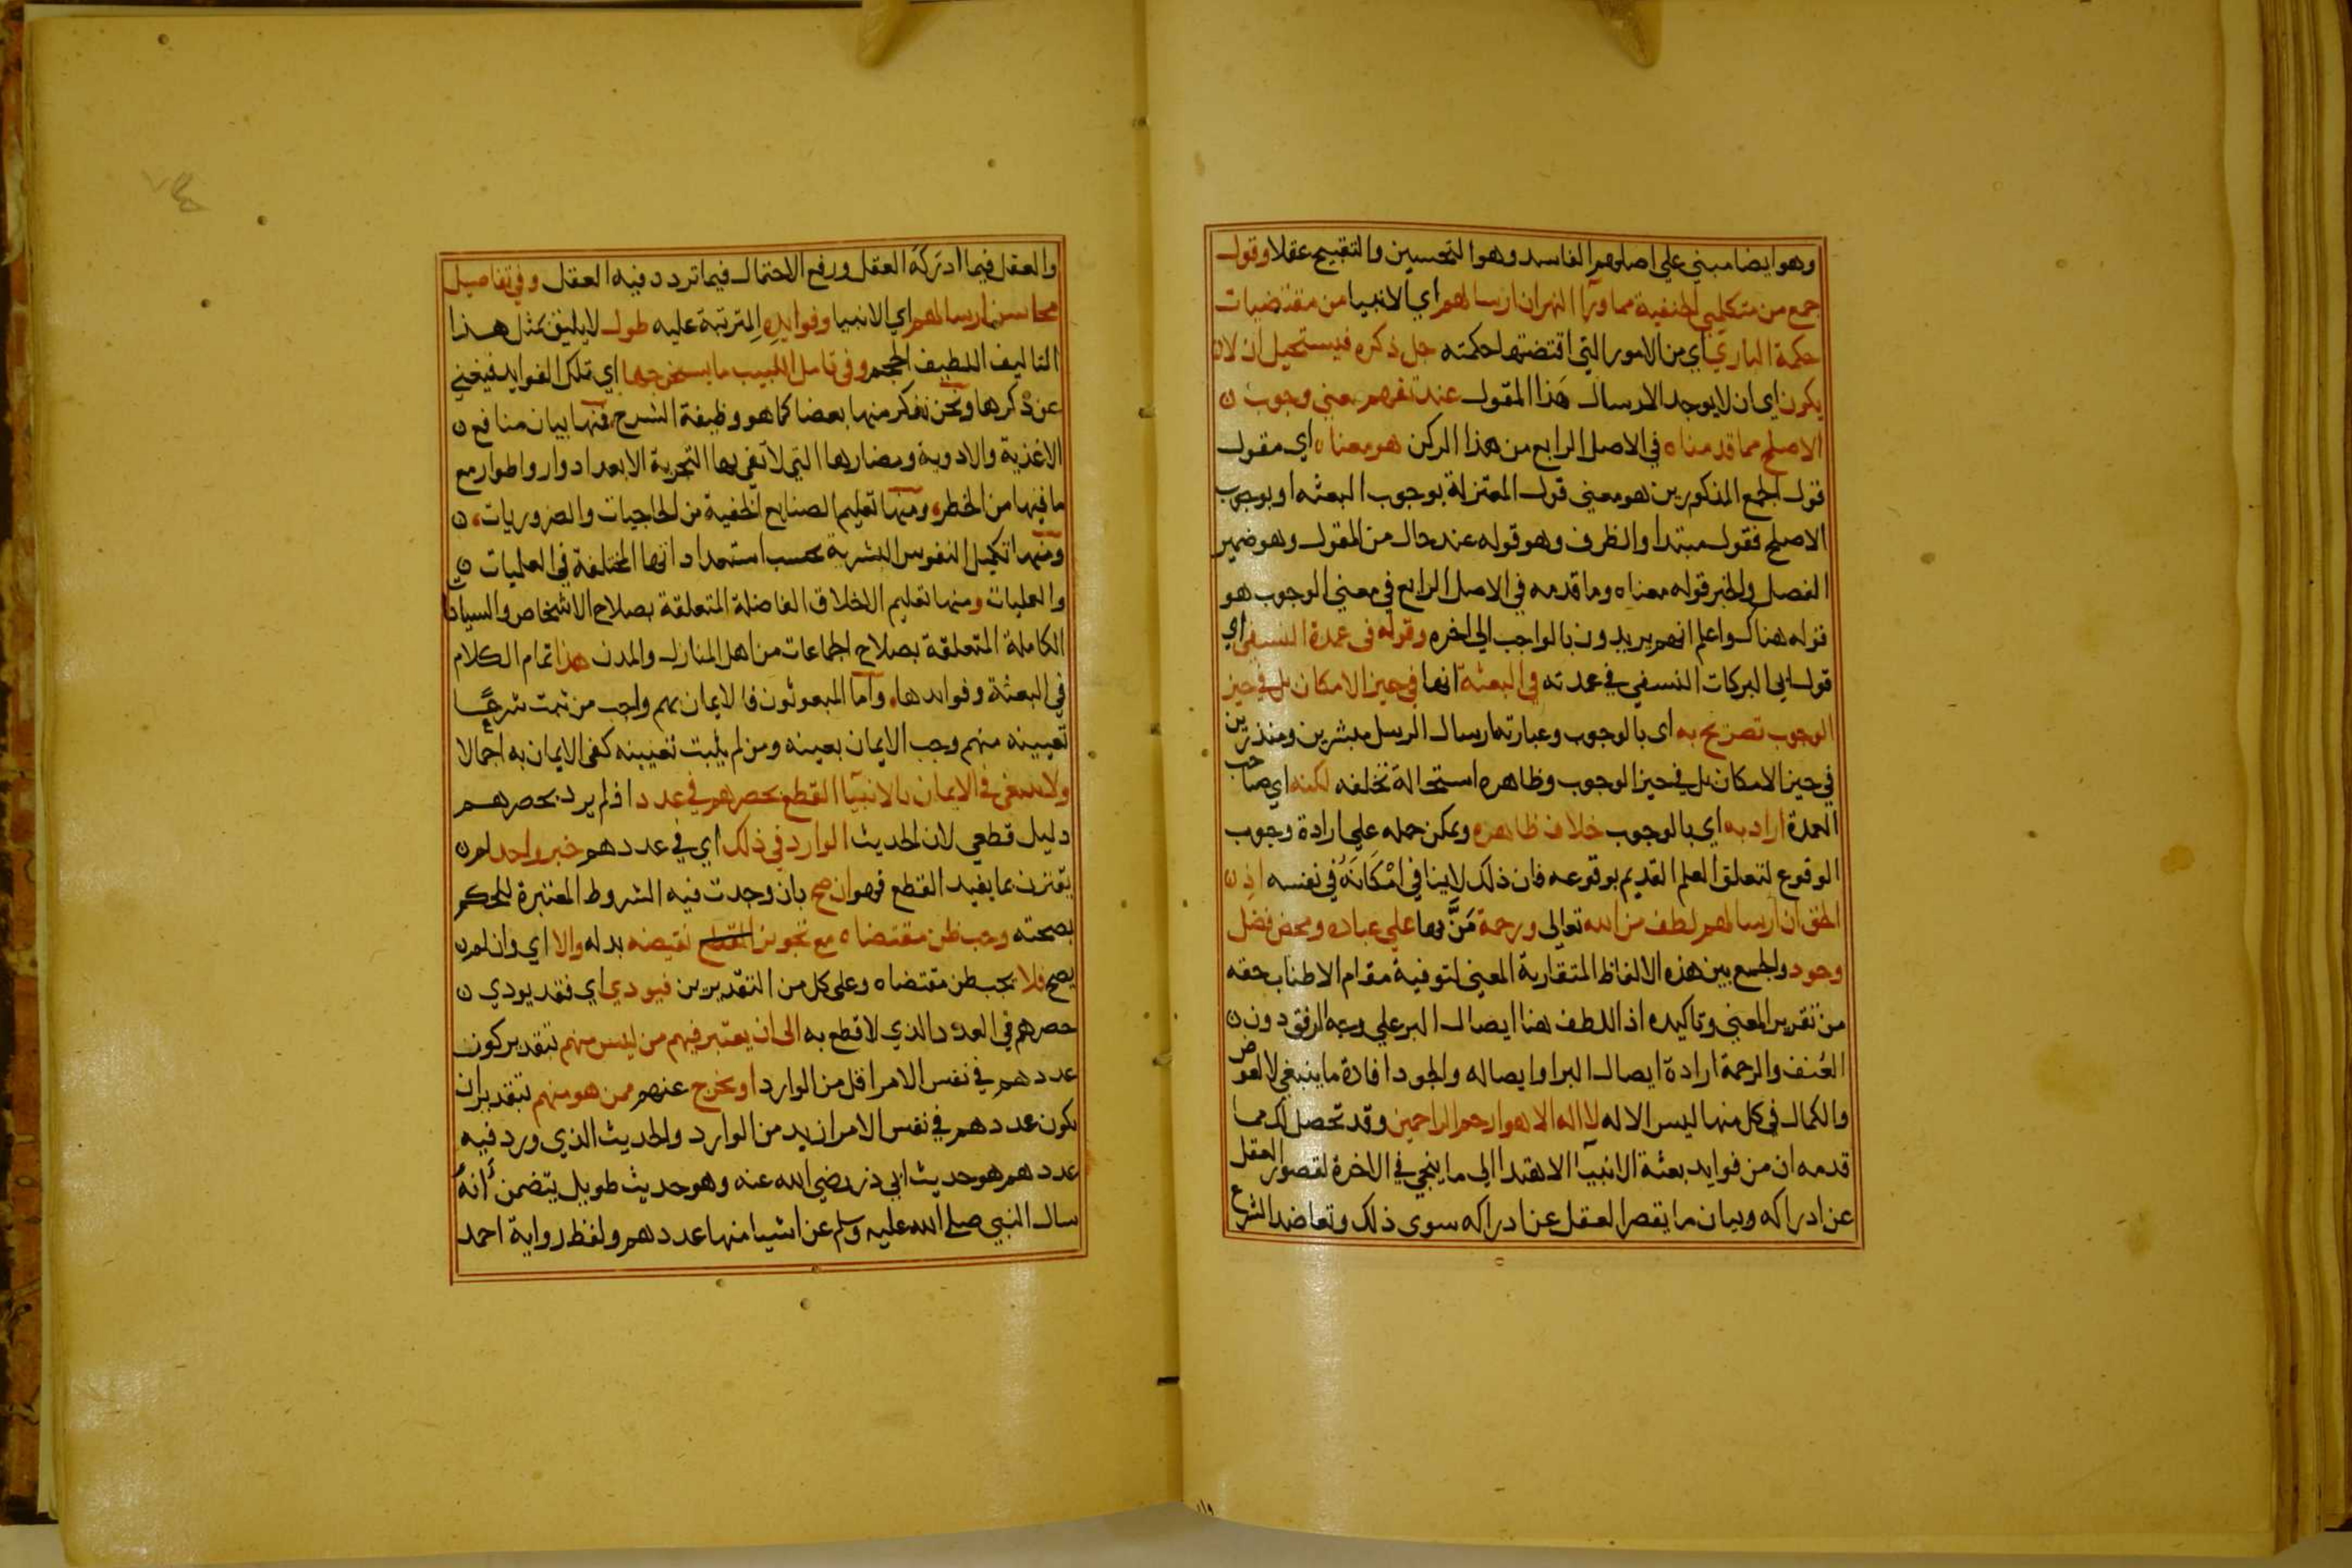 وهو ايضا مبني علي اصلهم الفاسد وهو التحسين والتقبيح عقلا وقول
جمع من متكلمي الحنفية مما ورآ النهر ان ارسالهم اي الانبيا من مقتضيات
حكمة الباري اي من الامور التي اقتضتها حكمته جل ذكره فيستحيل ان لا
يكون اي ان لا يوجد الارسال هذا المقول عند تفهم معني وجوب
الاصلح مما قدمناه في الاصل الرابع من هذا الركن هو معناه اي مقول
قول الجمع المذكورين هو معني قول المعتزلة بوجوب البعثه او بوجوب
الاصلح فقول مبتدا والظرف وهو قوله عند حال من المقول وهو ضمير
الفصل والخبر قوله معناه وما قدمه في الاصل الرابع في معني الوجوب هو
قوله هناك واعلم انهم يريدون بالواجب الي اخره وقوله في عمدة النسفي اي
قول ابي البركات النسفي في عمدته في البعثة انها في حيز الامكان بل في حيز
الوجوب تصريح به اي بالوجوب وعبارته ارسال الرسل مبشرين ومنذرين
في حيز الامكان بل في حيز الوجوب وظاهره استحالة تخلفه لكنه اي صاحب
العمدة اراد به اي بالوجوب خلاف ظاهره ويمكن حمله علي ارادة وجوب
الوقوع لتعلق العلم القديم بوقوعه فان ذلك لا ينافي امكانه في نفسه اذ
الحق ان ارسالهم لطف من الله تعالي ورحمة من بها علي عباده ومحض فضل
وجود والجمع بين هذه الالفاظ المتقاربة المعني لتوفية مقام الاطناب حقه
من تقرير المعني وتاكيده اذ اللطف هنا ايصال البر علي وجه الرفق دون
العُنف والرحمة ارادة ايصال البر او ايصاله والجود افادة ما ينبغي لا لعوض
والكمال في كل منها ليس الا له لا اله الا هو ارحم الراحمين وقد تحصل لك مما
قدمه ان من فوايد بعثة الانبيآ الاهتدا الي ما ينجي في الاخرة لقصور العقل
عن ادراكه وبيان ما يقصر العقل عن ادراكه سوى ذلك وتعاضد الشرع
والعقل فيما ادركه العقل ورفع الاحتمال فيما تردد فيه العقل وفي تفاصيل
محاسن ارسالهم اي الانبيا وفوايده المترتبة عليه طول لا يليق بمثل هذا
التاليف اللطيف الحجم وفي تامل اللبيب ما يستخرجها اي تلك الفوايد فيغني
عن ذكرها ونحن نذكر منها بعضا كما هو وظيفة الشرح فمنها بيان منافع
الاغذية والادوية ومضارها التي لا تفي بها التجربة الا بعد ادوار واطوار مع
ما فيها من الخطر ومنها تعليم الصنايع الخفية من الحاجيات والضروريات
ومنها تكميل النفوس البشرية بحسب استعداداتها المختلفة في العلميات
والعمليات ومنها تعليم الاخلاق الفاضلة المتعلقة بصلاح الاشخاص والسياسات
الكاملة المتعلقة بصلاح الجماعات من اهل المنازل والمدن هذا تمام الكلام
في البعثة وفوايدها واما المبعوثون فالايمان بهم واجب من ثبت شرعا
تعيينه منهم وجب الايمان بعينه ومن لم يثبت تعيينه كفى الايمان به اجمالا
ولا ينبغي في الايمان بالانبيآ القطع بحصرهم في عدد اذ لم يرد بحصرهم
دليل قطعي لان الحديث الوارد في ذلك اي في عددهم خبر واحد لم
يقترن بما يفيد القطع فهو ان صح بان وجدت فيه الشروط المعتبرة للحكم
بصحته وجب ظن مقتضاه مع تجويز نقيضه بدله والا اي وان لم
يصح فلا يجب ظن مقتضاه وعلى كل من التقديرين فيودي اي فقد يودي
حصرهم في العدد الذي لا قطع به الى ان يعتبر فيهم من ليس منهم بتقدير كون
عددهم في نفس الامر اقل من الوارد او يخرج عنهم ممن هو منهم بتقدير ان
يكون عددهم في نفس الامر ازيد من الوارد والحديث الذي ورد فيه
عددهم هو حديث ابي ذر رضي الله عنه وهو حديث طويل يتضمن انه
سال النبي صلي الله عليه وسلم عن اشيا منها عددهم ولفظ رواية احمد